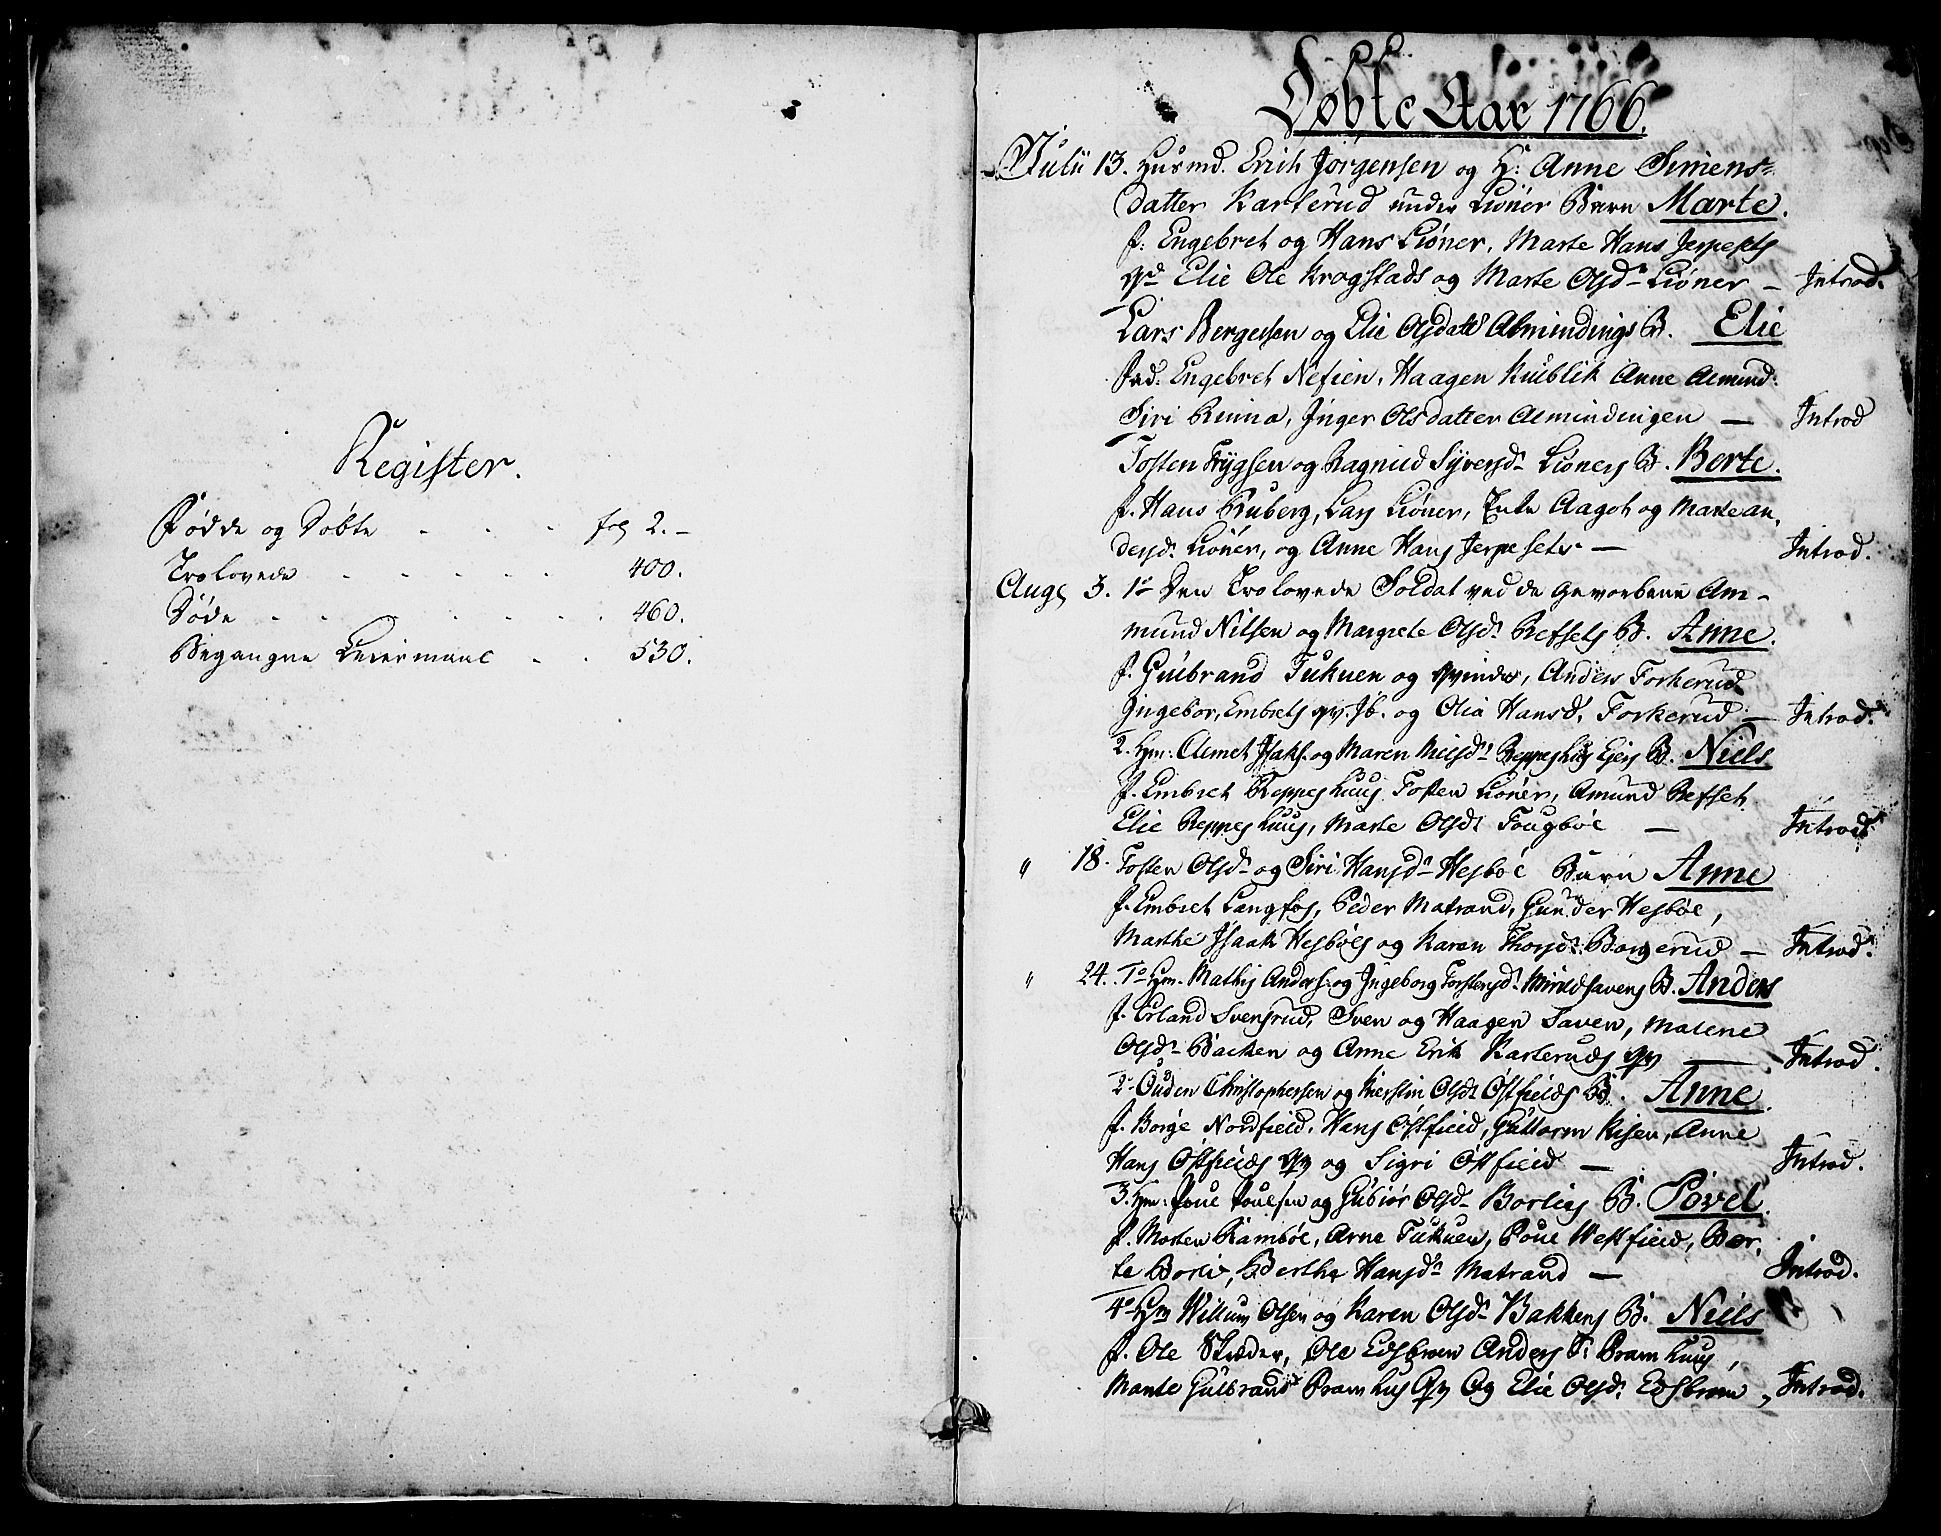 Register.
Fødde og Døbte - - - fra 2. -
Trolovede - - - - - 400.
Døde - - - - - - 460.
Begangne Leiermaal - - 530.
Døbte Aar 1766.
Julii 13. Husmd. Erich Jørgensen og H: Anne Simens=
datter Karterud under Liøner Barn Marte.
F: Engebret og Hans Liøner, Marte Hans Jerpesets
Elie Ole Krogstads og Marte Olsd. Liøner - Introd.
Lars Bergersen og Elie Olsdatt Almindings B. Elie
Fad. Engebret Nefien, Haagen Kulblik Anne Almind:
Siri Rinna, Inger Olsdatter Almindingen - Introd
Tosten Trygsen og Ragnild Syversd. Lioners B. Berte.
F. Hans Bruberg, Lars Liøner, Enke Aagot og Marte an,
dersd. Liøner, og Anne Hans Jerpesets - Introd.
Aug 3. 1o Den Trolovede Soldat ved de gevorbene Am-
mund Nilsen og Margrete Olsd. Refsets B. Anne.
F. Gulbrand Tukuen og qvinde, Anders Torkerud
Ingebor, Embrets qv. Ib. og Olia Hansd. Torkerud - Introd.
2. Hm: Amet Isaks. og Maren Nielsd. Reppeshus Ejers B. Niels
F. Embret Reppeshuus Tosten Lioner, Amund Refset.
Elie Reppeshuus, Marte Olsd. Tougbøl - Introd.
" 18. Tosten Olsd. og Siri Hansd. Hesbøl Barn Anne
F. Embret Langfos, Peder Matrand, Gunder Hesbøl,
Marthe Isaak Hesbøls og Karen Thorsd. Borgerud - Introd.
" 24. 1o Hm. Mathis Anders. og Ingeborg Torstensd. B. Anders
F. Erland Svensrud, Sven og Haagen Saven, Malene
Olsd. Backen og Anne Erik Karteruds qv - Introd.
2. Ouden Christophersen og Kierstin Olsd. Østfields B. Anne.
F. Børge Nordfield, Hans Østfield, Guttorm Risen, Anne
Hans Østfields qv og Sigri Østfield - Introd.
3. Hm: Poul Poulsen og Gubiør Olsd. Borlis B. Povel.
F. Morten Rambøl, Arne Tukuen, Poul Westfield, Ber,
te Borli, Berthe Hansd. Matrand - Introd.
4o Hm Willum Olsen og Karen Olsd. Bakkens B. Niels
F. Ole Stræder, Ole Edsbroen Anders Pramhuus,
Marte Gulbrand Pramhus Qv Og Elie Olsd. Edsbroen, Introd.